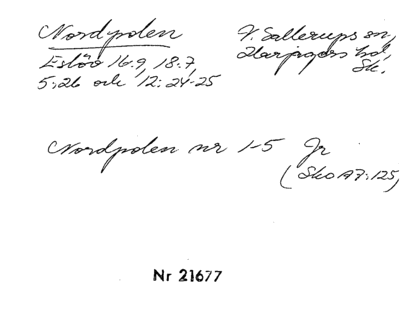 Nordpolen
V. Sallerups sn,
Harjagers hd,
Sk.
Eslöv 16:9, 18:7,
5:26 och 12:24-25
Nordpolen nr 1-5 Jr
(Sko A7:125)
Nr 21677